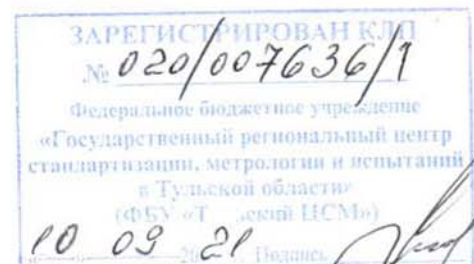 ЗАРЕГИСТРИРОВАН КЛП
№ 020/007636/1
Федеральное бюджетное учреждение
«Государственный региональный центр
стандартизации, метрологии и испытаний
в Тульской области»
(ФБУ «Т ский ЦСМ»)
10 09 2021 Подпись